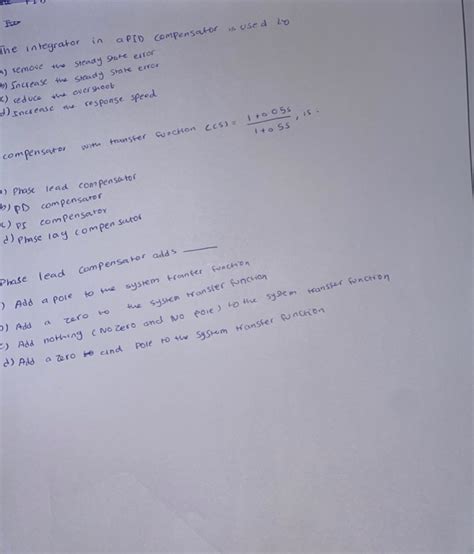 The integrator in a PID compensator is used to
a) remove the steady state error
b) Increase the steady state error
c) reduce the overshoot
d) Increase the response speed
compensator with transfer function C(s) = 1+0.05s / 1+0.5s, is.
a) Phase lead compensator
b) PD compensator
c) PI compensator
d) Phase lag compensator
Phase lead compensator adds ______
) Add a pole to the system tranfer function
b) Add a zero to the system transfer function
c) Add nothing (No zero and No pole) to the system transfer function
d) Add a zero to and pole to the system transfer function